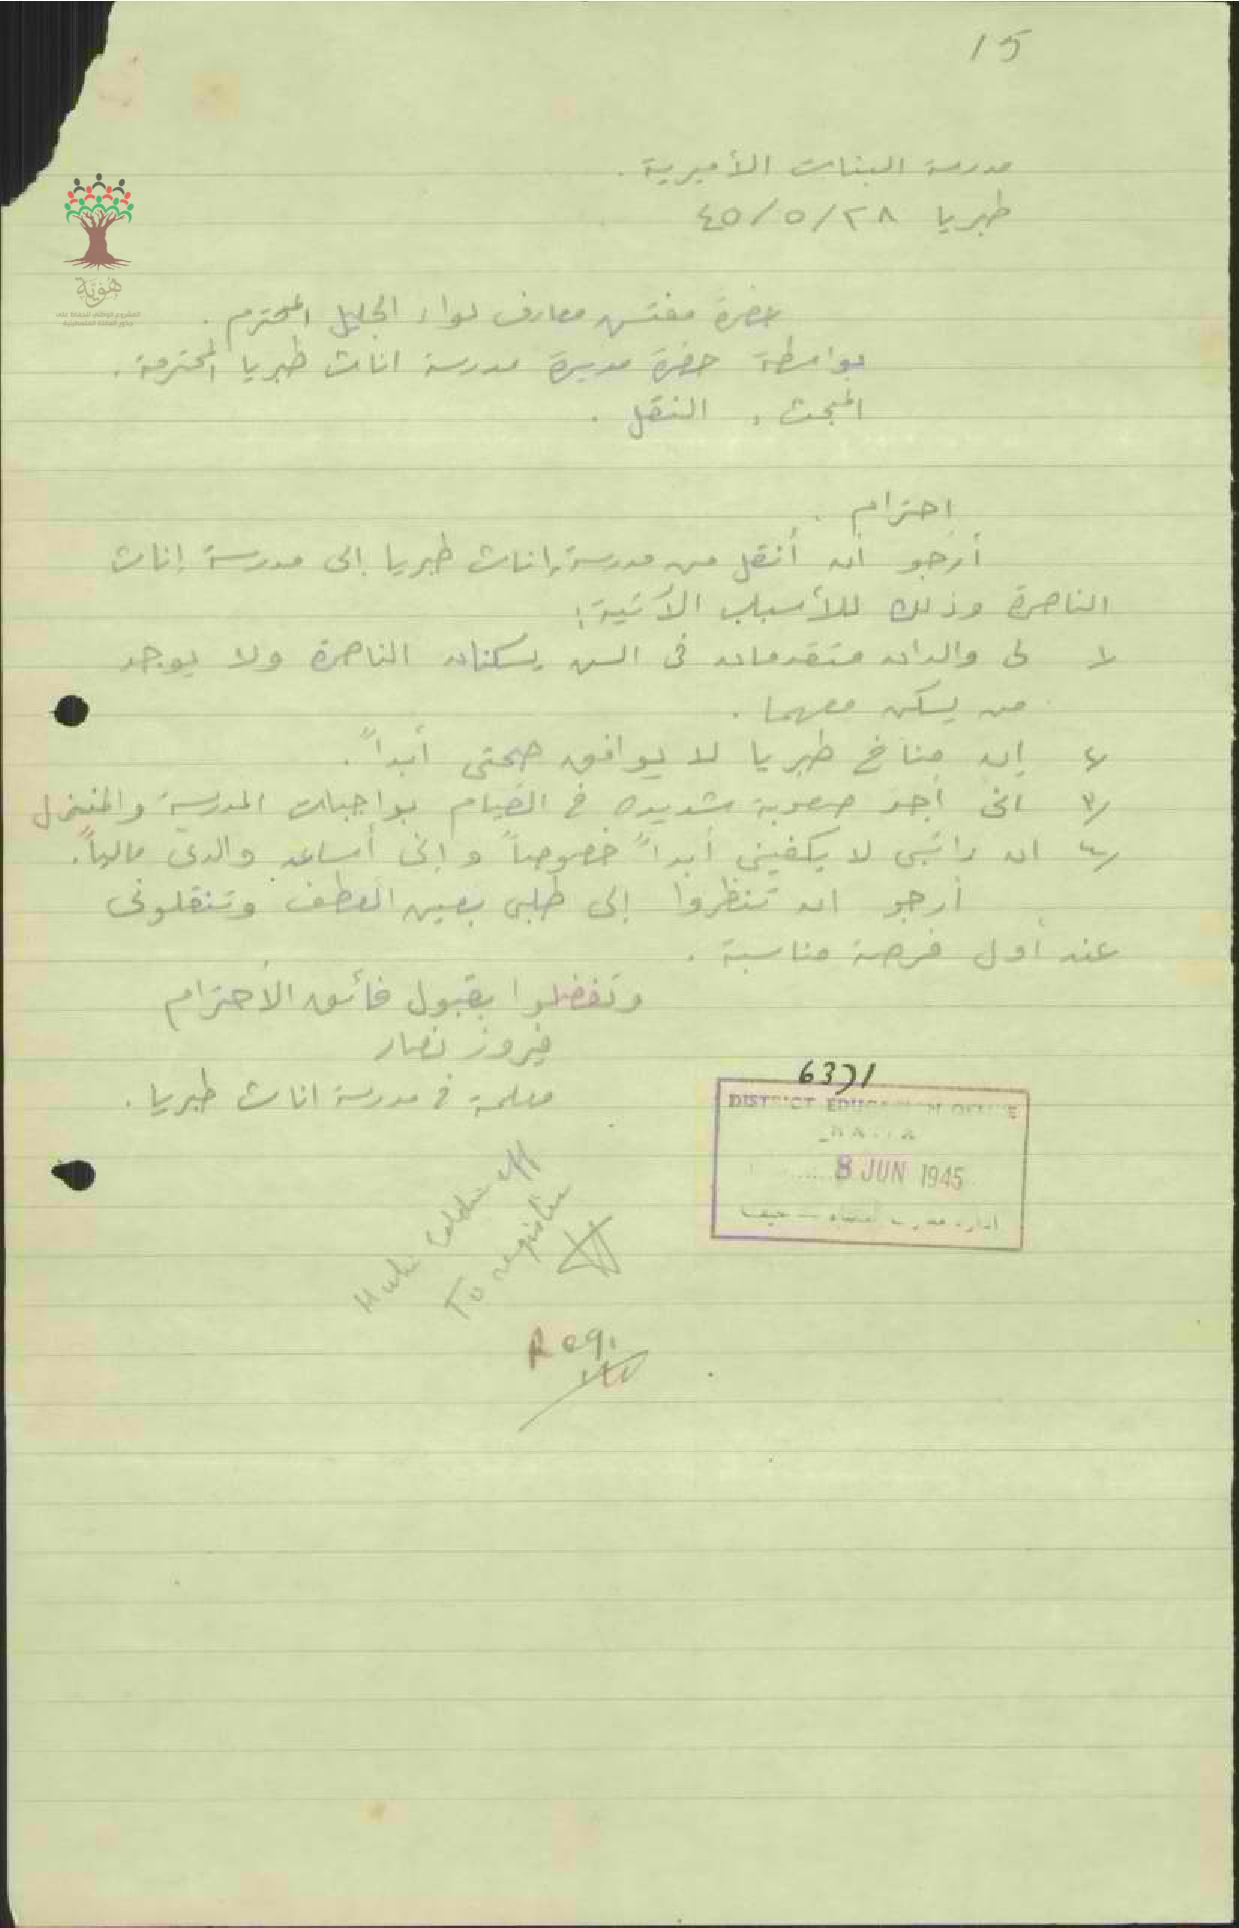 15
مدرسة البنات الأميرية.
طبريا ٢٨/٥/٤٥
هُوِيَّة
المشروع الوطني للحفاظ على
جذور العائلة الفلسطينية
حضرة مفتش معارف لواء الجليل المحترم.
بواسطة حضرة مديرة مدرسة اناث طبريا المحترمة.
المبحث، النقل.
إحترام.
أرجو أن أنقل من مدرسة إناث طبريا إلى مدرسة إناث
الناصرة وذلك للأسباب الآتية:
١/ لي والدان متقدمان في السن يسكنان الناصرة ولا يوجد
من يسكن معهما.
٢/ إن مناخ طبريا لا يوافق صحتي أبداً.
٣/ اني أجد صعوبة شديده في القيام بواجبات المدرسة والمنزل
٤/ ان راتبي لا يكفيني أبداً خصوصاً وإني أساعد والدي مالياً.
أرجو ان تنظروا إلى طلبي بعين العطف وتنقلوني
عند أول فرصة مناسبة.
وتفضلوا بقبول فائق الأحترام
فيروز نصار
معلمة في مدرسة اناث طبريا.
6371
DISTRICT EDUCATION OFFICE
8 JUN 1945
To register
Reg.